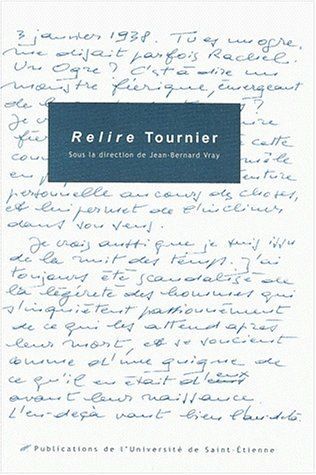 3 janvier 1938. Tu es un ogre,
me disait parfois Rachel.
Un Ogre ? C'est à dire un
monstre féerique, émergeant
de
Relire Tournier
Sous la direction de Jean-Bernard Vray
cette
personnelle au cours des choses,
et lui permet de l'incliner
dans son sens.
Je crois aussi que je suis issu
de la nuit des temps. J'ai
toujours été scandalisé de
la légèreté des hommes qui
s'inquiètent passionnément
de ce qui les attend après
leur mort et se soucient
comme d'une guigne de
ce qu'il en était d'eux
avant leur naissance.
L'en-deçà vaut bien l'au-delà
Publications de l'Université de Saint-Étienne